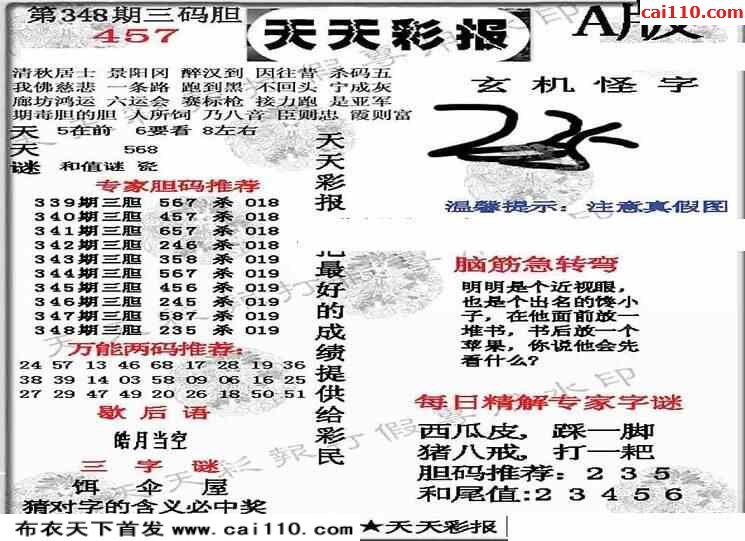 第348期三码胆
457
天天彩报
A版
cai110.com
清秋居士 景阳冈 醉汉到 因往昔 杀码五
我佛慈悲 一条路 跑到黑 不回头 宁成灰
廊坊鸿运 六运会 赛标枪 接力跑 是亚军
期毒胆的胆 人所饲 乃八音 臣则忠 霞则富
天 5在前 6要看 8左右
天 568
谜 和值谜 瓷
专家胆码推荐
339期三胆 567 杀 018
340期三胆 457 杀 018
341期三胆 657 杀 018
342期三胆 246 杀 018
343期三胆 358 杀 019
344期三胆 567 杀 019
345期三胆 456 杀 019
346期三胆 245 杀 019
347期三胆 587 杀 019
348期三胆 235 杀 019
万能两码推荐:
24 57 13 46 68 17 28 19 36
38 39 14 03 58 09 06 16 25
27 29 47 49 20 26 18 50 51
歇后语
皓月当空
三字谜
饵 伞 屋
猜对字的含义必中奖
天天彩报
把最好的成绩提供给彩民
玄机怪字
温馨提示: 注意真假图
脑筋急转弯
明明是个近视眼,
也是个出名的馋小
子,在他面前放一
堆书,书后放一个
苹果,你说他会先
看什么?
每日精解专家字谜
西瓜皮, 踩一脚
猪八戒, 打一耙
胆码推荐: 2 3 5
和尾值:2 3 4 5 6
布衣天下首发 www.cai110.com ★天天彩报